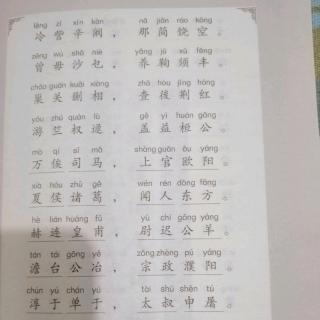 lěng zī xīn kàn nā jiǎn ráo kōng
冷訾辛阚，那简饶空。
zēng wú shā niè yǎng jū xū fēng
曾毋沙乜，养鞠须丰。
cháo guān kuǎi xiàng zhā hòu jīng hóng
巢关蒯相，查後荆红。
yóu zhú quán lù gě yì huán gōng
游竺权逯，盖益桓公。
mò qí sī mǎ shàng guān ōu yáng
万俟司马，上官欧阳。
xià hóu zhū gě wén rén dōng fāng
夏侯诸葛，闻人东方。
hè lián huáng fǔ yù chí gōng yáng
赫连皇甫，尉迟公羊。
tán tái gōng yě zōng zhèng pú yáng
澹台公冶，宗政濮阳。
chún yú chán yú tài shū shēn tú
淳于单于，太叔申屠。